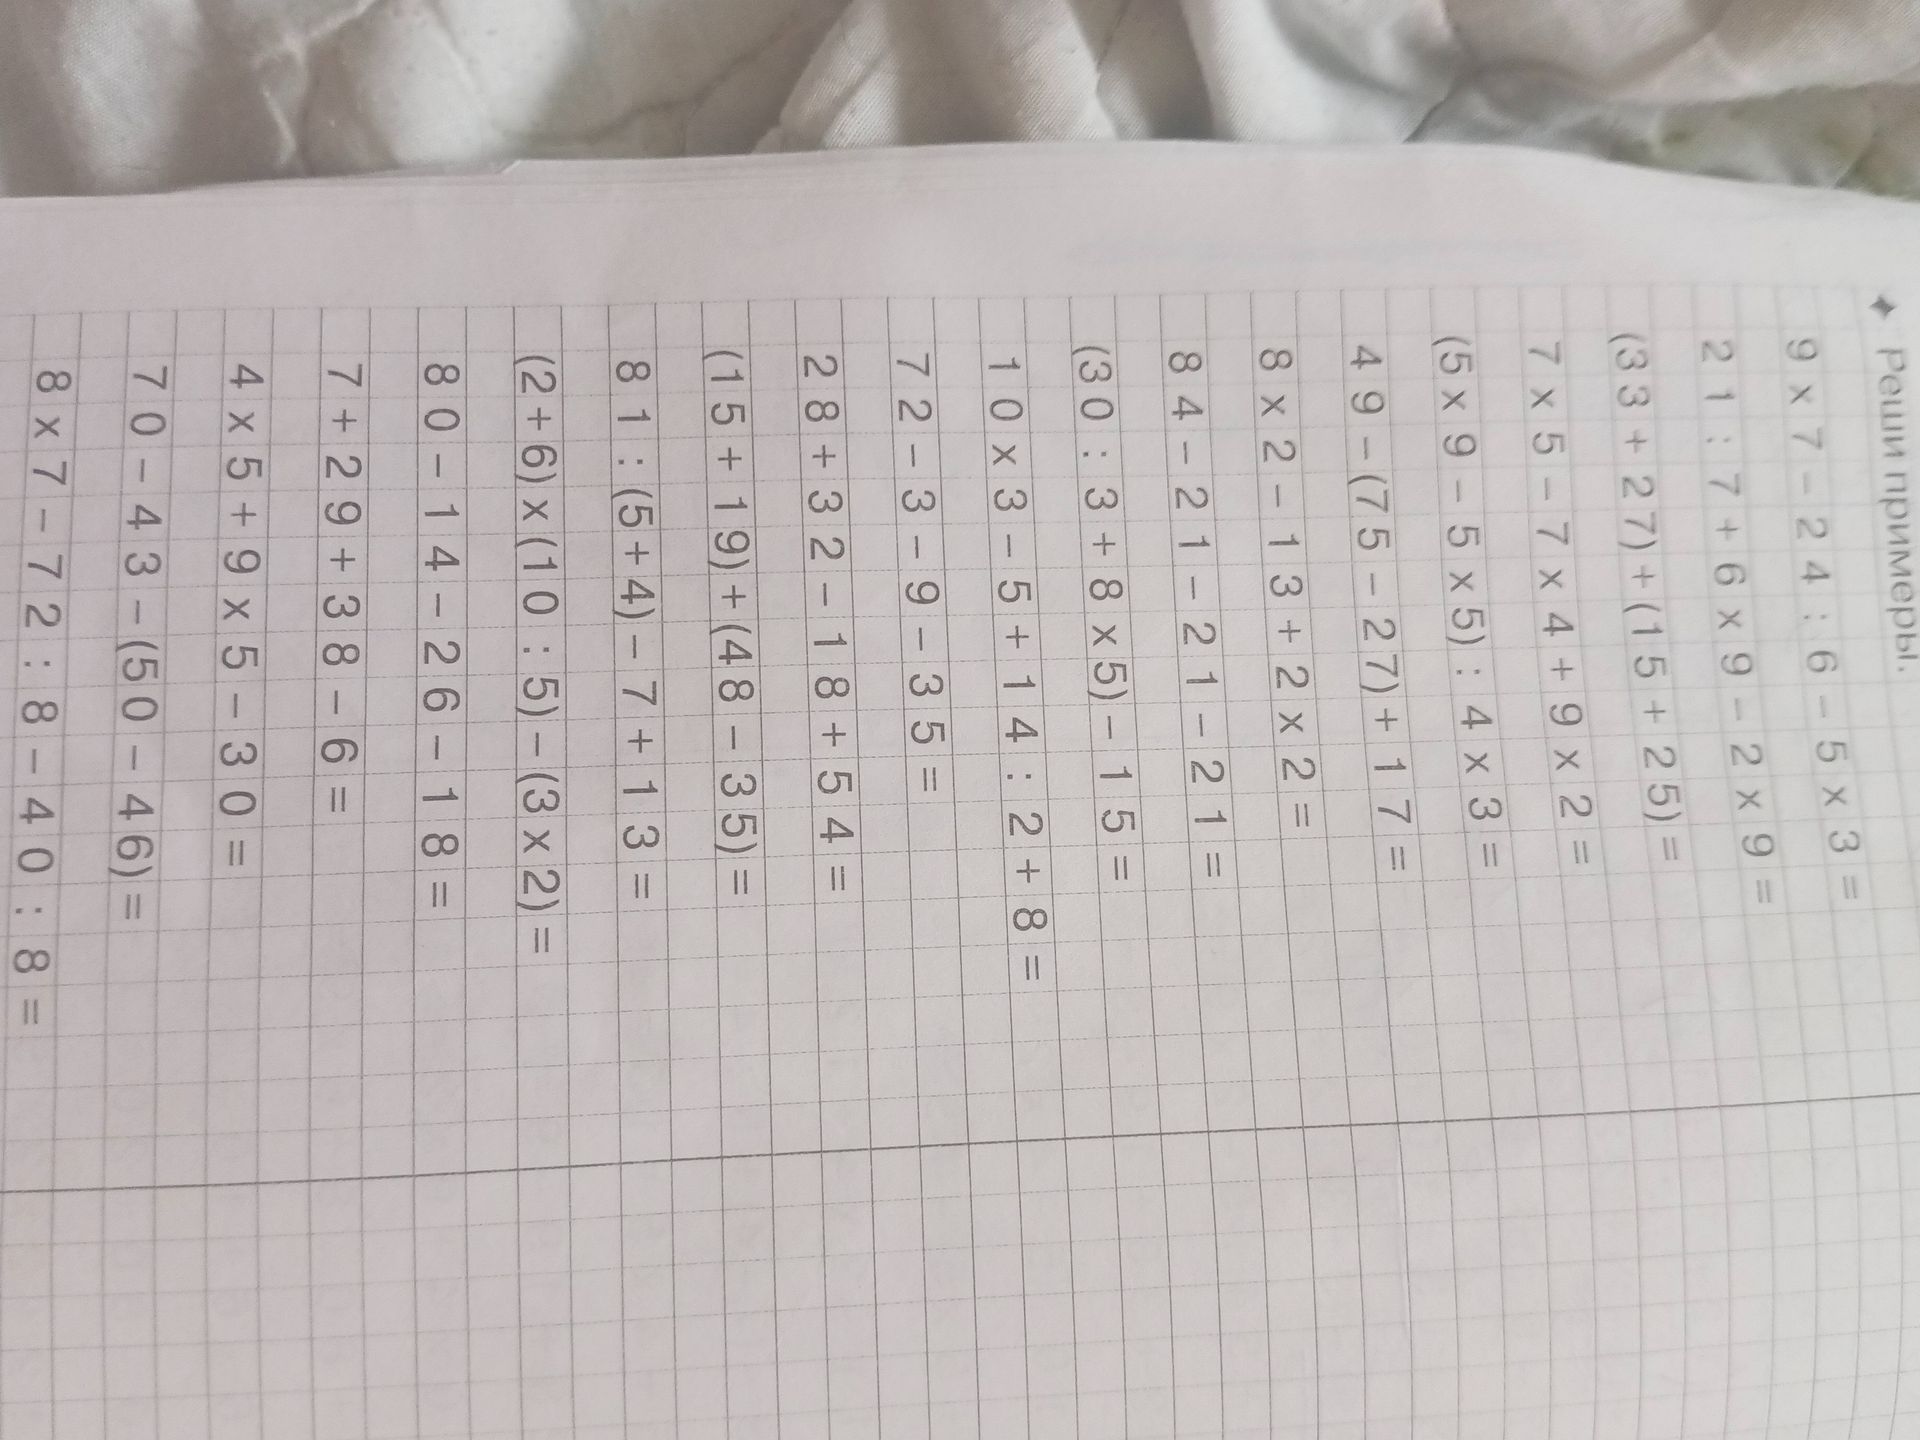 ✦ Реши примеры.
9 x 7 - 2 4 : 6 - 5 x 3 =
2 1 : 7 + 6 x 9 - 2 x 9 =
(3 3 + 2 7) + (1 5 + 2 5) =
7 x 5 - 7 x 4 + 9 x 2 =
(5 x 9 - 5 x 5) : 4 x 3 =
4 9 - (7 5 - 2 7) + 1 7 =
8 x 2 - 1 3 + 2 x 2 =
8 4 - 2 1 - 2 1 - 2 1 =
(3 0 : 3 + 8 x 5) - 1 5 =
1 0 x 3 - 5 + 1 4 : 2 + 8 =
7 2 - 3 - 9 - 3 5 =
2 8 + 3 2 - 1 8 + 5 4 =
(1 5 + 1 9) + (4 8 - 3 5) =
8 1 : (5 + 4) - 7 + 1 3 =
(2 + 6) x (1 0 : 5) - (3 x 2) =
8 0 - 1 4 - 2 6 - 1 8 =
7 + 2 9 + 3 8 - 6 =
4 x 5 + 9 x 5 - 3 0 =
7 0 - 4 3 - (5 0 - 4 6) =
8 x 7 - 7 2 : 8 - 4 0 : 8 =